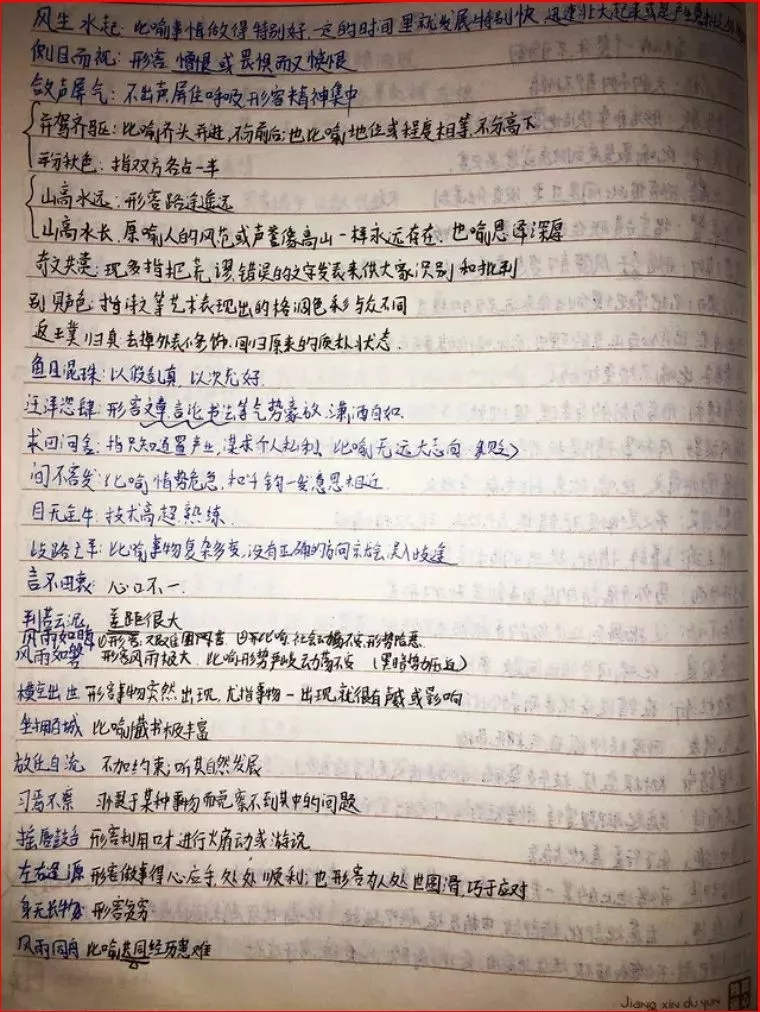 风生水起:比喻事情做得特别好,一定的时间里就发展特别快 迅速壮大起来
侧目而视:形容憎恨或畏惧而又愤恨
敛声屏气:不出声屏住呼吸,形容精神集中
并驾齐驱:比喻齐头并进,不分前后;也比喻地位或程度相等,不分高下
平分秋色:指双方各占一半
山高水远:形容路途遥远
山高水长.原喻人的风范或声誉像高山一样永远存在.也喻恩泽深厚
奇文共赏:现多指把荒谬.错误的文字发表来供大家识别和批判
别具声色:指诗文等艺术表现出的格调色彩与众不同
返璞归真:去掉外表修饰.回归原来的质朴状态.
鱼目混珠:以假乱真,以次充好.
汪洋恣肆:形容文章言论书法等气势豪放.潇洒自如.
求田问舍:指只知道置产业,谋求个人私利.比喻无远大志向
间不容发:比喻情势危急,和千钧一发意思相近.
目无全牛.技术高超.熟练.
歧路亡羊:比喻事物复杂多变,没有正确的方向就会误入歧途
言不由衷:心口不一.
判若云泥:差距很大
风雨如晦 形容
风雨如磐 形容风雨极大.比喻形势严峻动荡不安(黑暗势力压迫)
横空出世 形容事物突然出现,尤指事物一出现就很有声威或影响
坐拥百城 比喻藏书极丰富
放任自流 不加约束,听其自然发展
习焉不察 习惯于某种事物而觉察不到其中的问题
摇唇鼓舌 形容利用口才进行煽动或游说
左右逢源 形容做事得心应手,处处顺利;也形容为人处世圆滑,巧于应对
身无长物:形容贫穷
风雨同舟 比喻共同经历患难
Jiang xin du yun